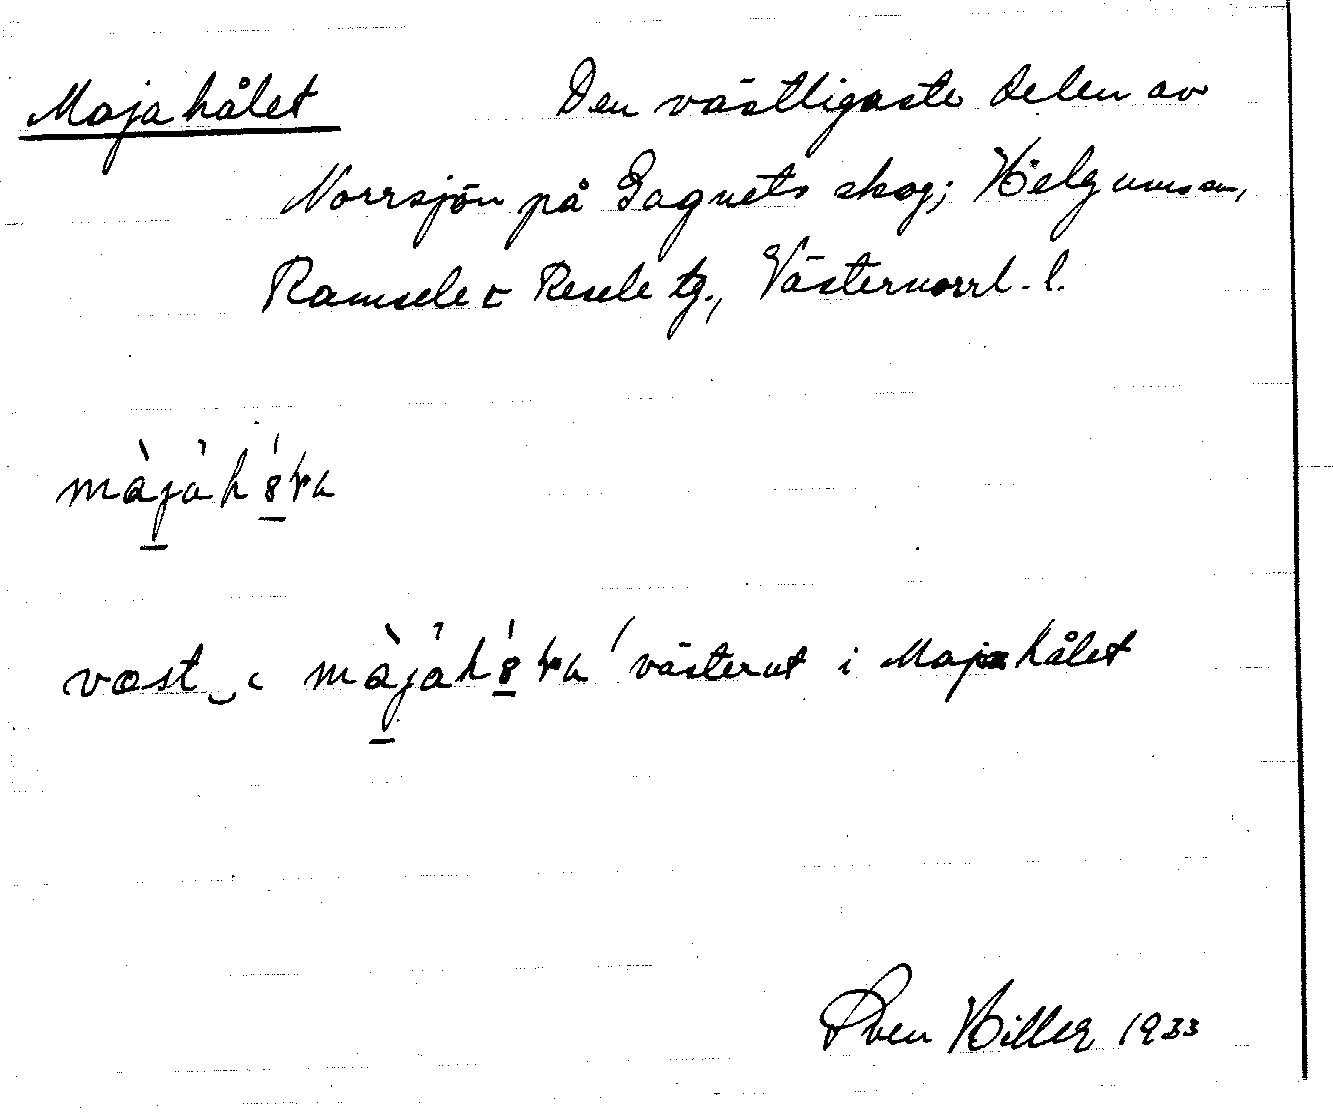 Majahålet Den västligaste delen av
Norrsjön på Gagnets skog; Helgums sn,
Ramsele o Resele tg., Västernorrl. l.
màjàh8́ɽa
væst ‿ ɩ màjàh8́ɽa 'västerut i Majahålet
Sven Hiller 1933